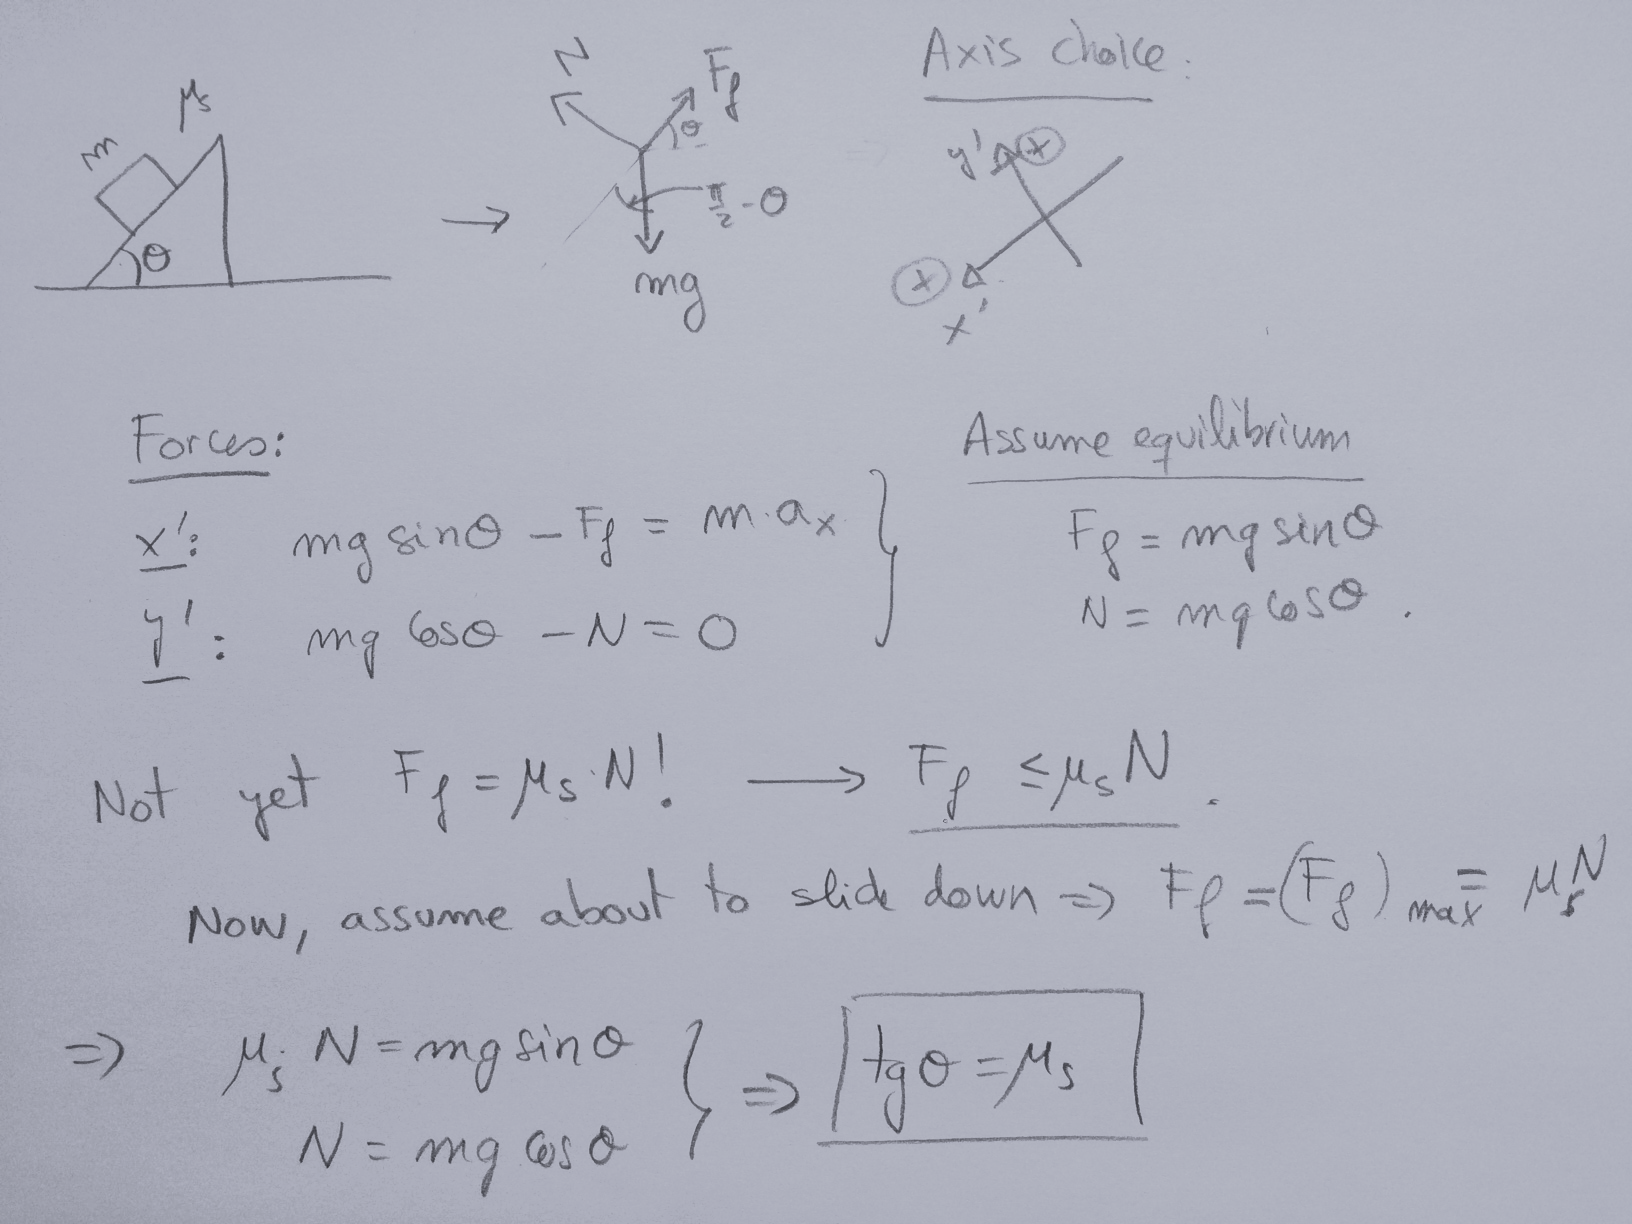 Axis choice:
m μs θ
N Ff θ π/2 - θ mg
y' (+)
(+) x'
Forces:
x': mg sinθ - Ff = m·ax
y': mg cosθ - N = 0
Assume equilibrium
Ff = mg sinθ
N = mg cosθ.
Not yet Ff = μs·N! → Ff ≤ μsN.
Now, assume about to slide down ⇒ Ff = (Ff)max = μsN
⇒ μs N = mg sinθ
N = mg cosθ
⇒ tgθ = μs